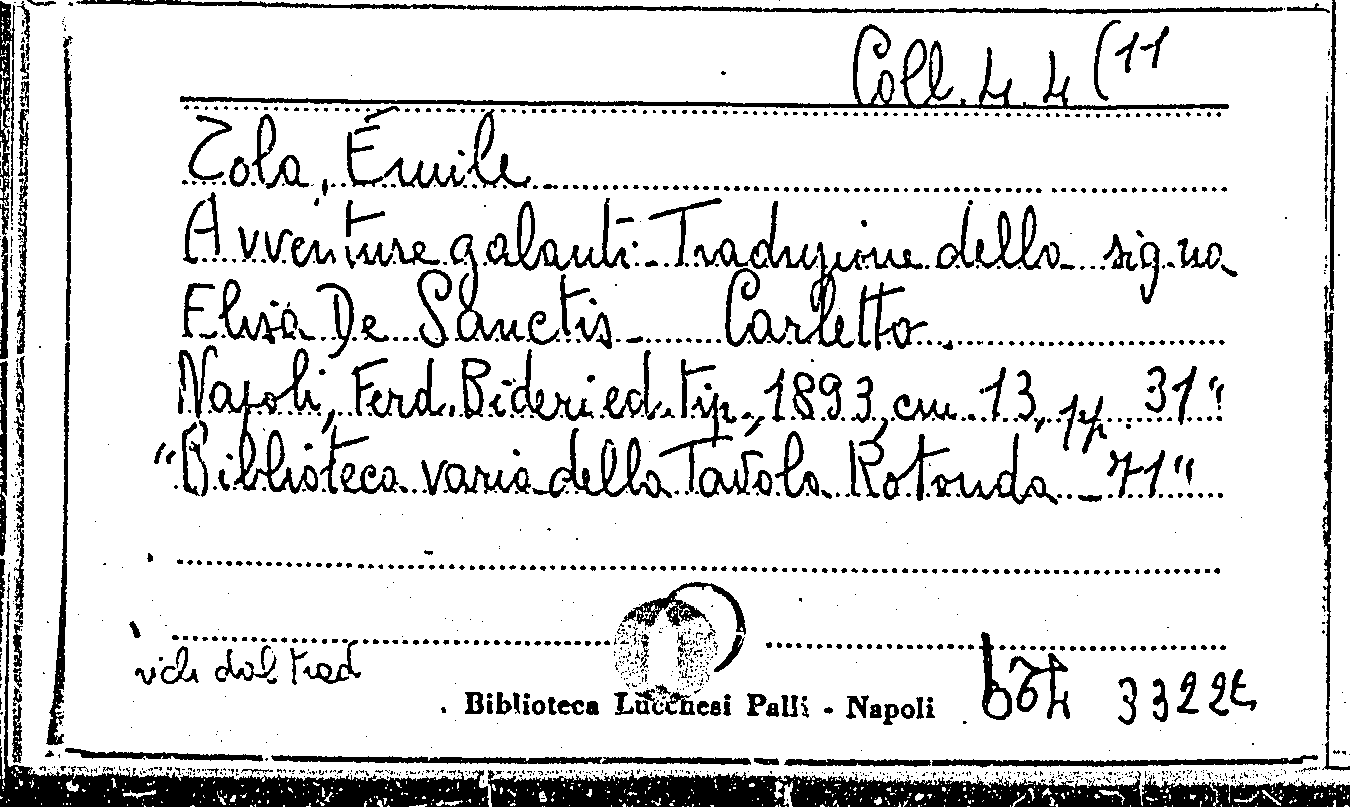 Coll. 4. 4 (11
Zola, Émile
Avventure galanti - Traduzione della sig.na
Elisa De Sanctis - Carletto.
Napoli, Ferd. Bideri ed. tip., 1893, cm. 13, pp. 31"
"Biblioteca varia della Tavola Rotonda - 71"
vidi dal trad
Biblioteca Lucchesi Palli - Napoli 3322